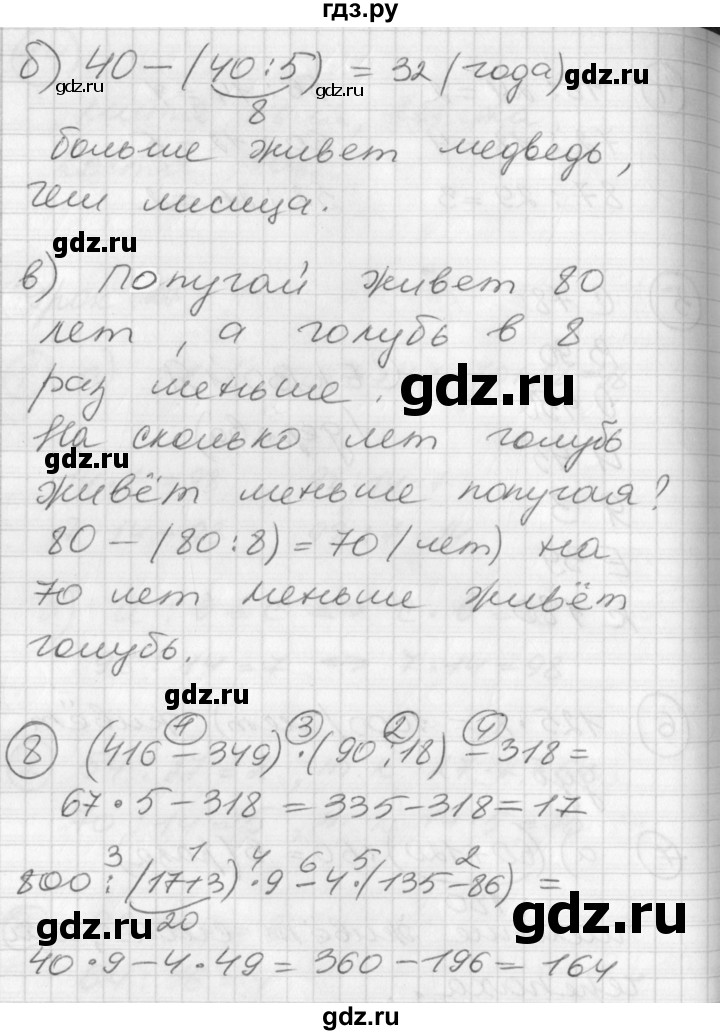 гдз.ру
б) 40 – (40 : 5) = 32 (года)
8
gdz.ru
gdz.ru
gdz.ru
больше живет медведь,
чем лисица.
gdz.ru
в) Попугай живет 80
лет, а голубь в 8
раз меньше.
gdz.ru
На сколько лет голубь
gdz.ru
живёт меньше попугая?
80 – (80 : 8) = 70 (лет) на
70 лет меньше живёт
голубь.
gdz.ru
1 3 2 4
8 (416 – 349) · (90 : 18) – 318 =
67 · 5 – 318 = 335 – 318 = 17
3 1 4 6 5 2
800 : (17+3) · 9 – 4 · (135 – 86) =
20
gdz.ru
gdz.ru
40 · 9 – 4 · 49 = 360 – 196 = 164